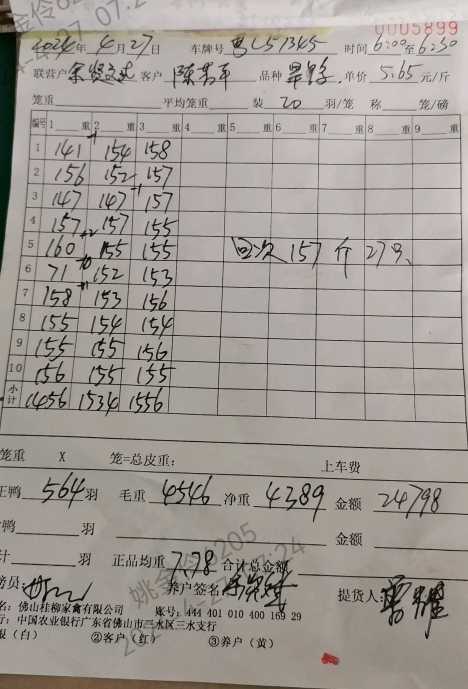 0005899
2024年4月27日 车牌号 粤L51345 时间6:00至6:30
联营户 客户 陈 品种 单价5.65元/斤
笼重 平均笼重 装20羽/笼 称 笼/磅
编号 1 重 2 重 3 重 4 重 5 重 6 重 7 重 8 重 9 重
1 141 154 158
2 156 152 157
3 147 147 157
4 157 157 155
5 160 155 155 回次157斤27只
6 71 152 153
7 158 153 156
8 155 154 154
9 155 155 156
10 156 155 155
小计 1456 1534 1556
笼重 X 笼=总皮重: 上车费
正鸭564羽 毛重4546 净重4389 金额24798
鸭 羽 金额
计 羽 正品均重7.78 合计总金额
磅员: 养户签名 提货人
名:佛山桂柳家禽有限公司 账号:444 401 010 400 169 29
行:中国农业银行广东省佛山市三水区三水支行
(白) ②客户(红) ③养户(黄)